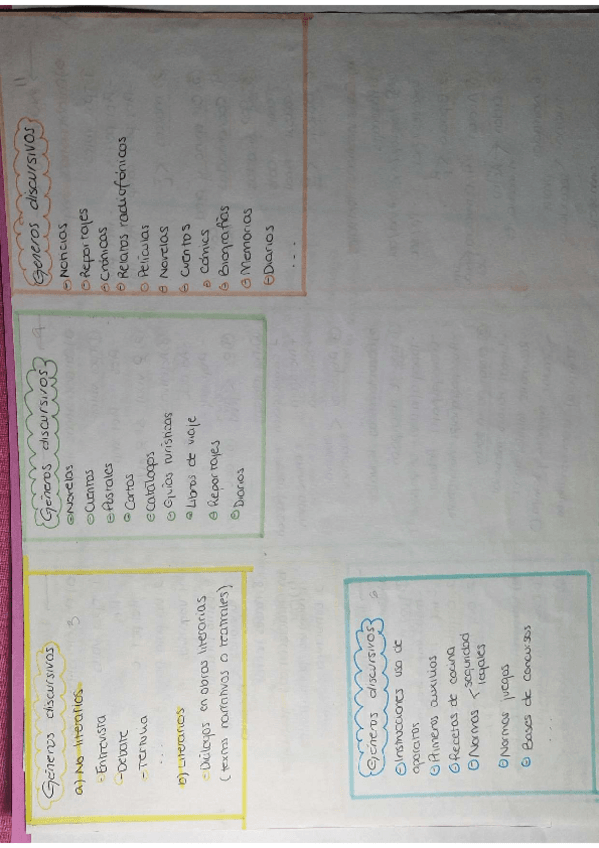 Géneros discursivos
a) No literarios
- Entrevista
- Debate
- Tertulia
...
b) Literarios
- Diálogos en obras literarias
(textos narrativos o teatrales)
Géneros discursivos
Novelas
Cuentos
Postales
Cartas
Catálogos
Guías turísticas
Libros de viaje
Reportajes
Diarios
Géneros discursivos
Noticias
Reportajes
Crónicas
Relatos radiofónicos
Películas
Novelas
Cuentos
Cómics
Biografías
Memorias
Diarios
...
Géneros discursivos
Instrucciones uso de
aparatos
Primeros auxilios
Recetas de cocina
Normas < seguridad
legales
Normas juegos
Bases de concursos
....